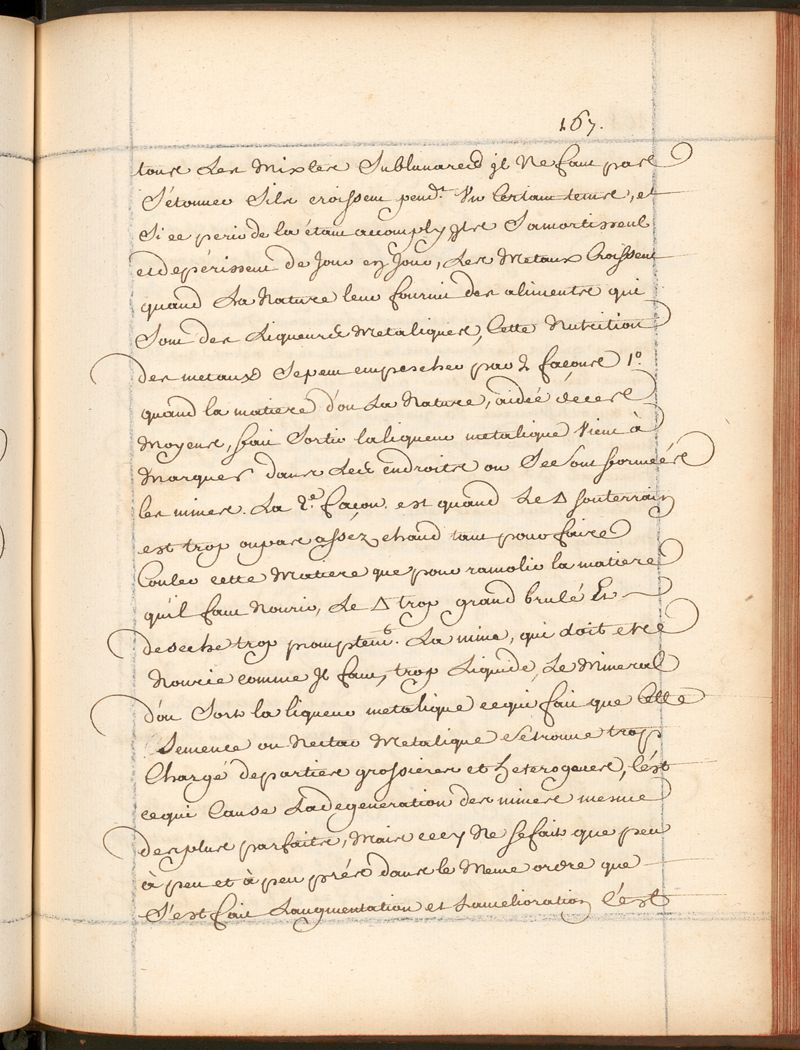 167.
tous Les Mixtes Sublunaires jl Ne faut pas
S'étonner Sils croissent pend.t Vn Certain temps, et
Si ce periode la étant accomply jls S'amortissent
et dépérissent de Jour en Jour, Les Metaux Croissent
quand La Nature leur fournit des alimens qui
Sont des Liqueurs Metaliques, Cette Nutrition
des metaux Se peut empescher par 2 façons 1.o
quand la matiere d'ou La Nature, aidée de ces
Moyens, fait Sortir la liqueur metalique Vient à
Manquer dans Les endroits ou Se Sont formées
les mines. La 2.e façon. est quand Le △ souterrain
est trop ou pas assez chaud tant pour faire
Couler cette Matiere que pour ramolir la matiere
qu'il faut Nourir, Le △ trop grand brulé Et
deseche trop promptem.t La mine, qui doit etre
Nourie comme Jl faut, trop Liquide, Le Mineral
d'ou Sort la liqueur metalique ce qui fait que Cette
Semence ou Nectar Metalique Se trouve trop
Chargé de parties grossieres et heterogenes, C'est
ce qui Cause La degeneration des mines mesme
des plus parfaites, Mais cecy Ne se fait que peu
à peu et à peu prés dans le Meme ordre que
S'est fait L'augmentation et L'amelioration C'est